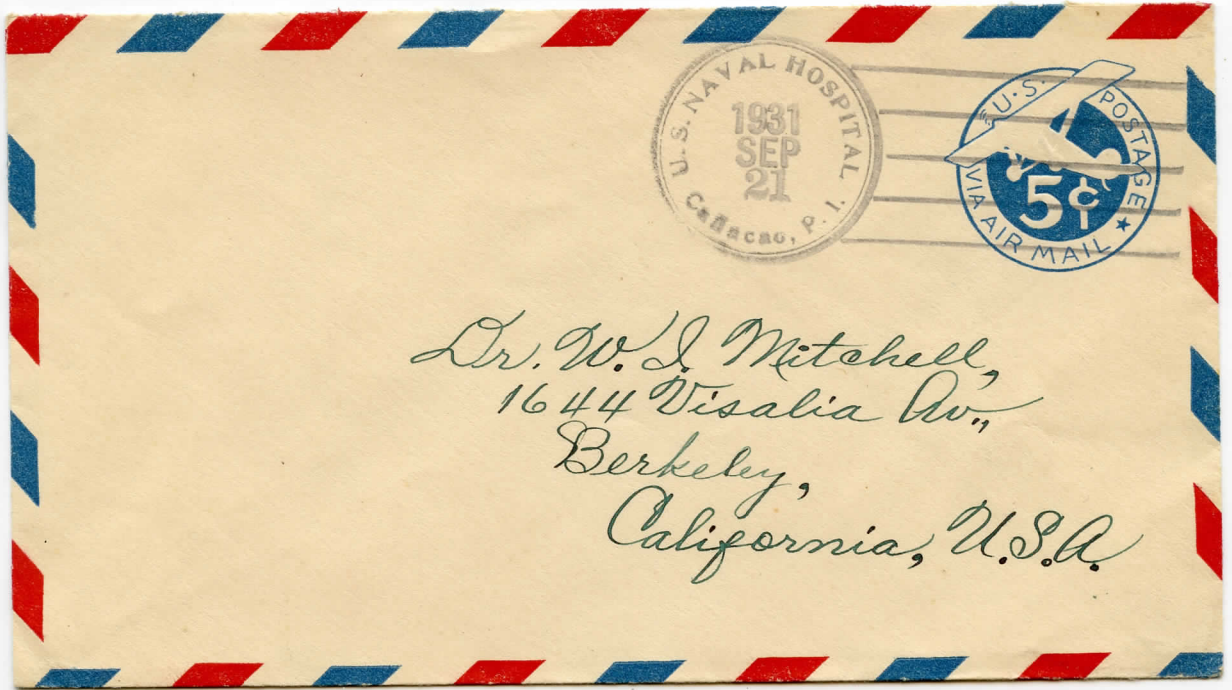 U.S. NAVAL HOSPITAL
1931
SEP
21
Cañacao, P. I.
U.S. POSTAGE
5¢
VIA AIR MAIL
Dr. W. I. Mitchell,
1644 Visalia Av.,,
Berkeley,
California, U.S.A.